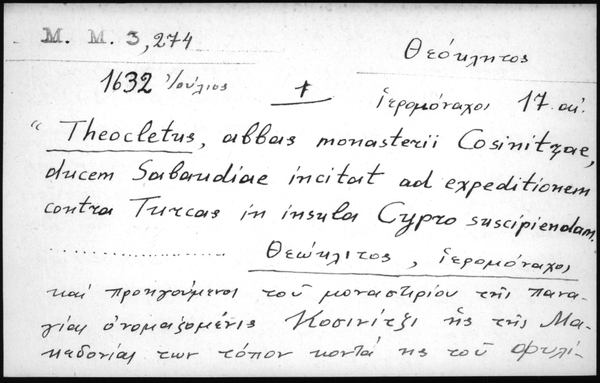 M. M. 3,274
Θεόκλητος
1632 Ἰούλιος
+
ἱερομόναχοι 17. αἰ.
“ Theocletus, abbas monasterii Cosinitzae,
ducem Sabaudiae incitat ad expeditionem
contra Turcas in insula Cypro suscipiendam.
.................... Θεώκλιτος, ἱερομόναχος
καί προηγούμενος τοῦ μοναστιρίου τῆς Πανα-
γίας ὀνομαζομένις Κοσινίτζι ἠς τῆς Μα-
κεδονίας των τόπον κοντά ης τοῦ Φυλί-